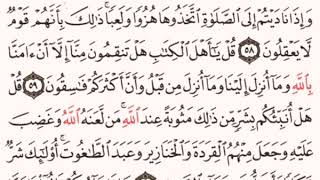 وَإِذَا نَادَيْتُمْ إِلَى ٱلصَّلَوٰةِ ٱتَّخَذُوهَا هُزُوًا وَلَعِبًا ۚ ذَٰلِكَ بِأَنَّهُمْ قَوْمٌ
لَّا يَعْقِلُونَ ٥٨ قُلْ يَٰٓأَهْلَ ٱلْكِتَٰبِ هَلْ تَنقِمُونَ مِنَّآ إِلَّآ أَنْ ءَامَنَّا
بِٱللَّهِ وَمَآ أُنزِلَ إِلَيْنَا وَمَآ أُنزِلَ مِن قَبْلُ وَأَنَّ أَكْثَرَكُمْ فَٰسِقُونَ ٥٩ قُلْ
هَلْ أُنَبِّئُكُم بِشَرٍّ مِّن ذَٰلِكَ مَثُوبَةً عِندَ ٱللَّهِ ۚ مَن لَّعَنَهُ ٱللَّهُ وَغَضِبَ
عَلَيْهِ وَجَعَلَ مِنْهُمُ ٱلْقِرَدَةَ وَٱلْخَنَازِيرَ وَعَبَدَ ٱلطَّٰغُوتَ ۚ أُو۟لَٰٓئِكَ شَرٌّ